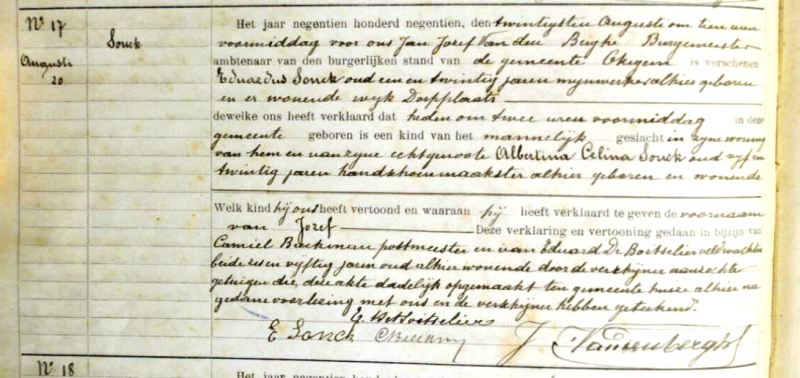 Nº 17
Augusti
20
Sonck
Het jaar negentien honderd negentien, den twintigsten Augusti om tien uren
voormiddag voor ons Jan Jozef Van den Berghe Burgemeester
ambtenaar van den burgerlijken stand van de gemeente Okegem is verschenen
Eduardus Sonck oud een en twintig jaren mynwerker alhier geboren
en er wonende wyk Dorpplaats
dewelke ons heeft verklaard dat heden om twee uren voormiddag in deze
gemeente geboren is een kind van het mannelijk geslacht in zyne woning
van hem en van zyne echtgenoote Albertina Celina Sonck oud vyf en
twintig jaren handschoenmaakster alhier geboren en wonende
Welk kind hij ons heeft vertoond en waaraan hij heeft verklaard te geven de voornaam
van Jozef Deze verklaring en vertooning gedaan in bijzijn van
Camiel postmeester en van Eduard De Boitselier veldwachter
beide zes en vijftig jaren oud alhier wonende door de verschijner aanzochte
getuigen die, deze akte dadelijk opgemaakt ten gemeente huize alhier na
gedane voorlezing met ons en de verschijner hebben geteekend.
E. De Boitselier
E Sonck J Vandenberghe
Nº 18
Het jaar negentien